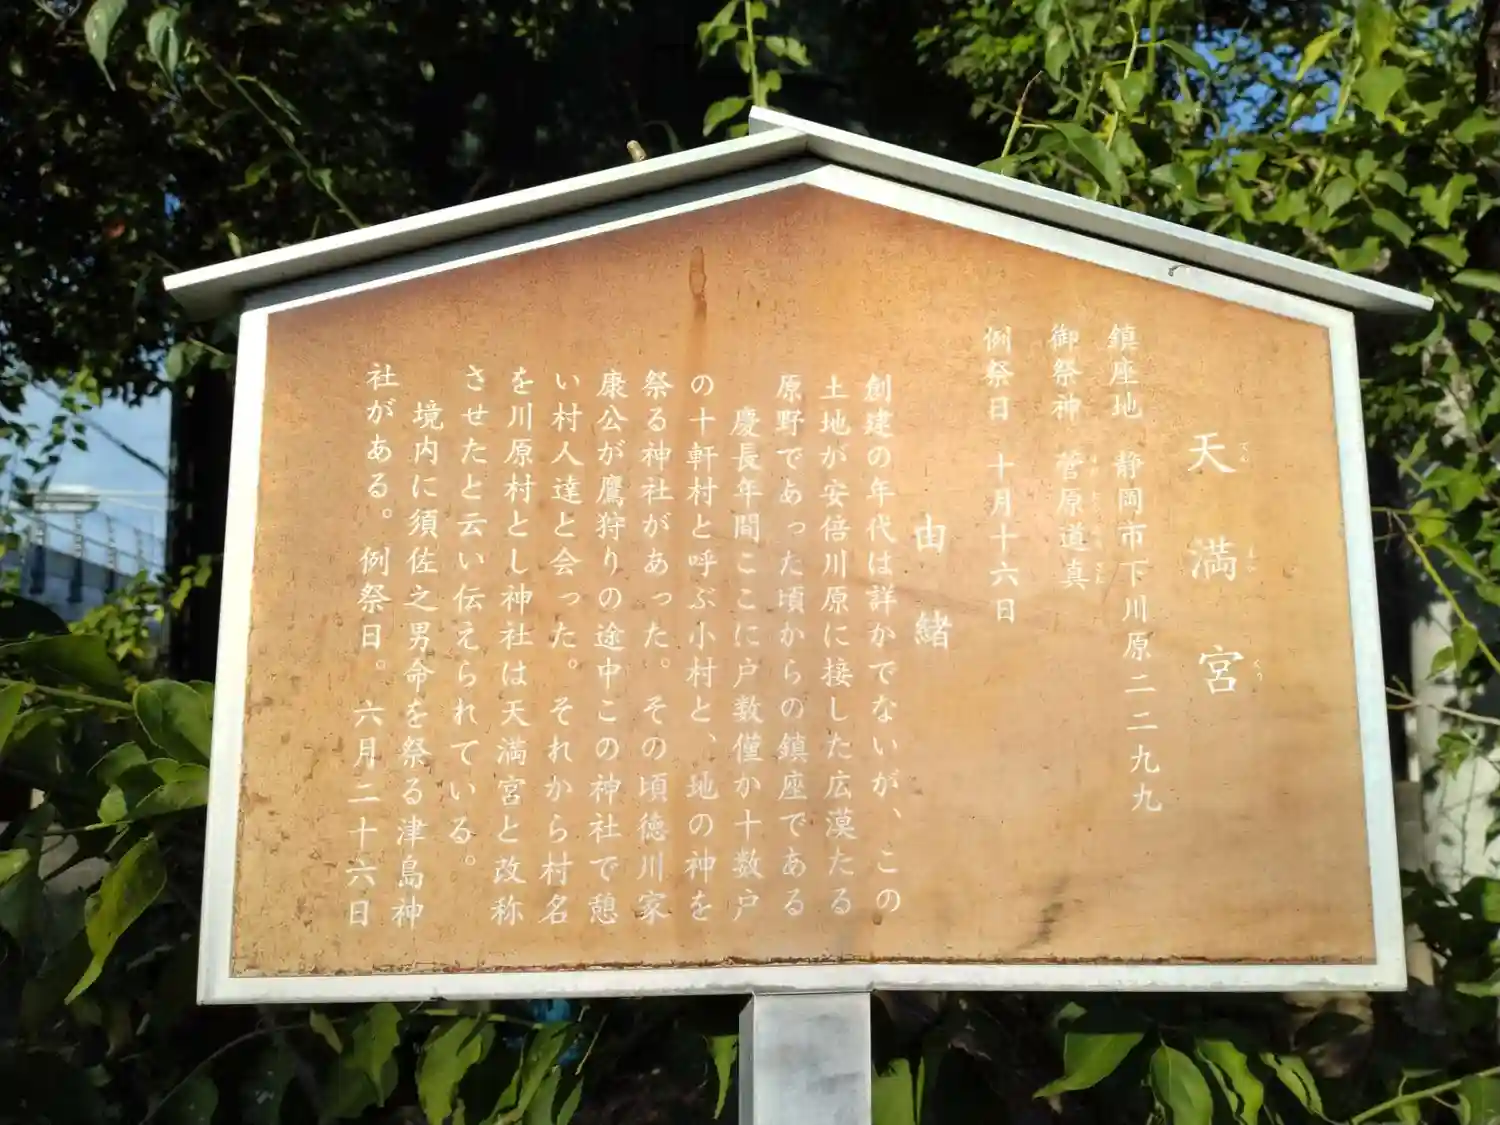 天満宮
鎮座地 静岡市下川原二二九九
御祭神 菅原道真
例祭日 十月十六日
由緒
創建の年代は詳かでないが、この
土地が安倍川原に接した広漠たる
原野であった頃からの鎮座である
慶長年間ここに戸数僅か十数戸
の十軒村と呼ぶ小村と、地の神を
祭る神社があった。その頃徳川家
康公が鷹狩りの途中この神社で憩
い村人達と会った。それから村名
を川原村とし神社は天満宮と改称
させたと云い伝えられている。
境内に須佐之男命を祭る津島神
社がある。例祭日。六月二十六日